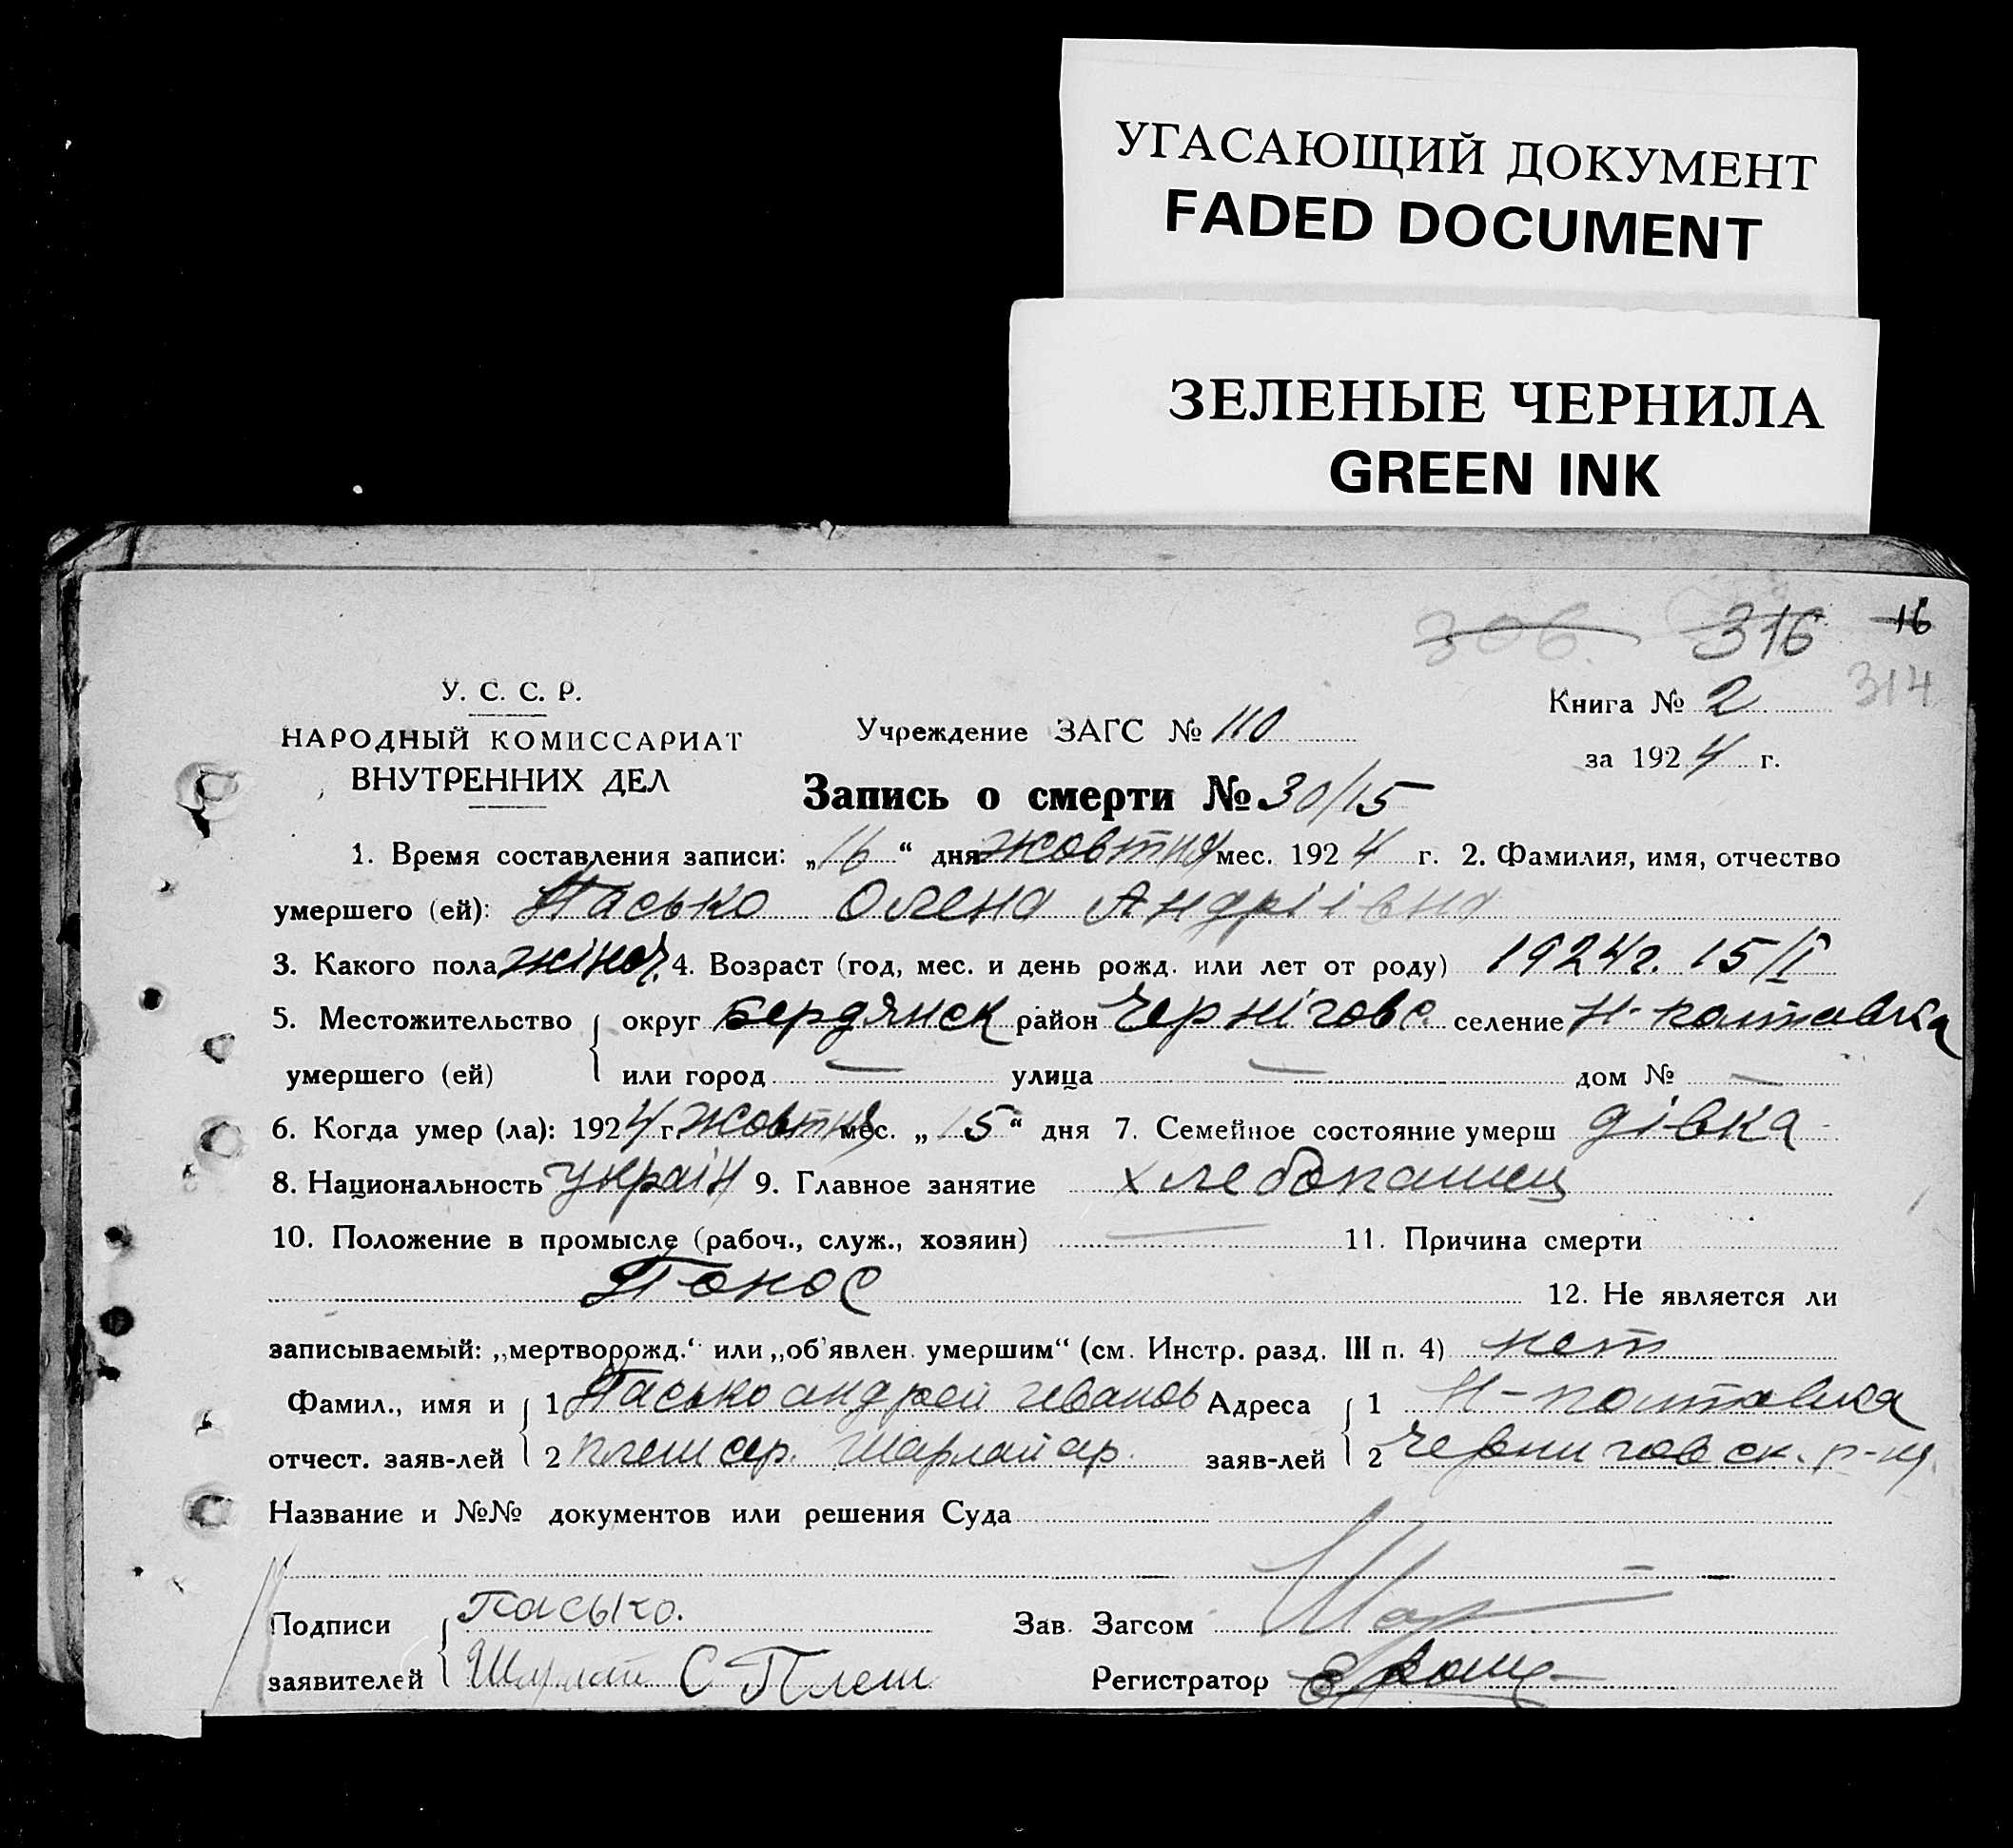 УГАСАЮЩИЙ ДОКУМЕНТ
FADED DOCUMENT
ЗЕЛЕНЫЕ ЧЕРНИЛА
GREEN INK
306. 316 16
314
У. С. С. Р.
НАРОДНЫЙ КОМИССАРИАТ
ВНУТРЕННИХ ДЕЛ
Учреждение ЗАГС № 110
Книга № 2
за 1924 г.
Запись о смерти № 30/15
1. Время составления записи: „16“ дня жовтня мес. 1924 г. 2. Фамилия, имя, отчество
умершего (ей): Пасько Олена Андріівна
3. Какого пола жіноч. 4. Возраст (год, мес. и день рожд. или лет от роду) 1924 г. 15/I
5. Местожительство округ Бердянск район Черніговс. селение Н-Полтавка
умершего (ей) или город — улица — дом № —
6. Когда умер (ла): 1924 г. жовтня мес. „15“ дня 7. Семейное состояние умерш дівка
8. Национальность україн 9. Главное занятие хлебопашец
10. Положение в промысле (рабоч., служ., хозяин) — 11. Причина смерти
Понос 12. Не является ли
записываемый: „мертворожд.“ или „об'явлен. умершим“ (см. Инстр. разд. III п. 4) нет
Фамил., имя и 1 Пасько андрей иванов Адреса 1 Н-Полтавка
отчест. заяв-лей 2 Плеш сер. Шарлай ар. заяв-лей 2 Черниговск. р-н
Название и №№ документов или решения Суда
Подписи Пасько. Зав. Загсом
заявителей Шарлай С Плеш Регистратор